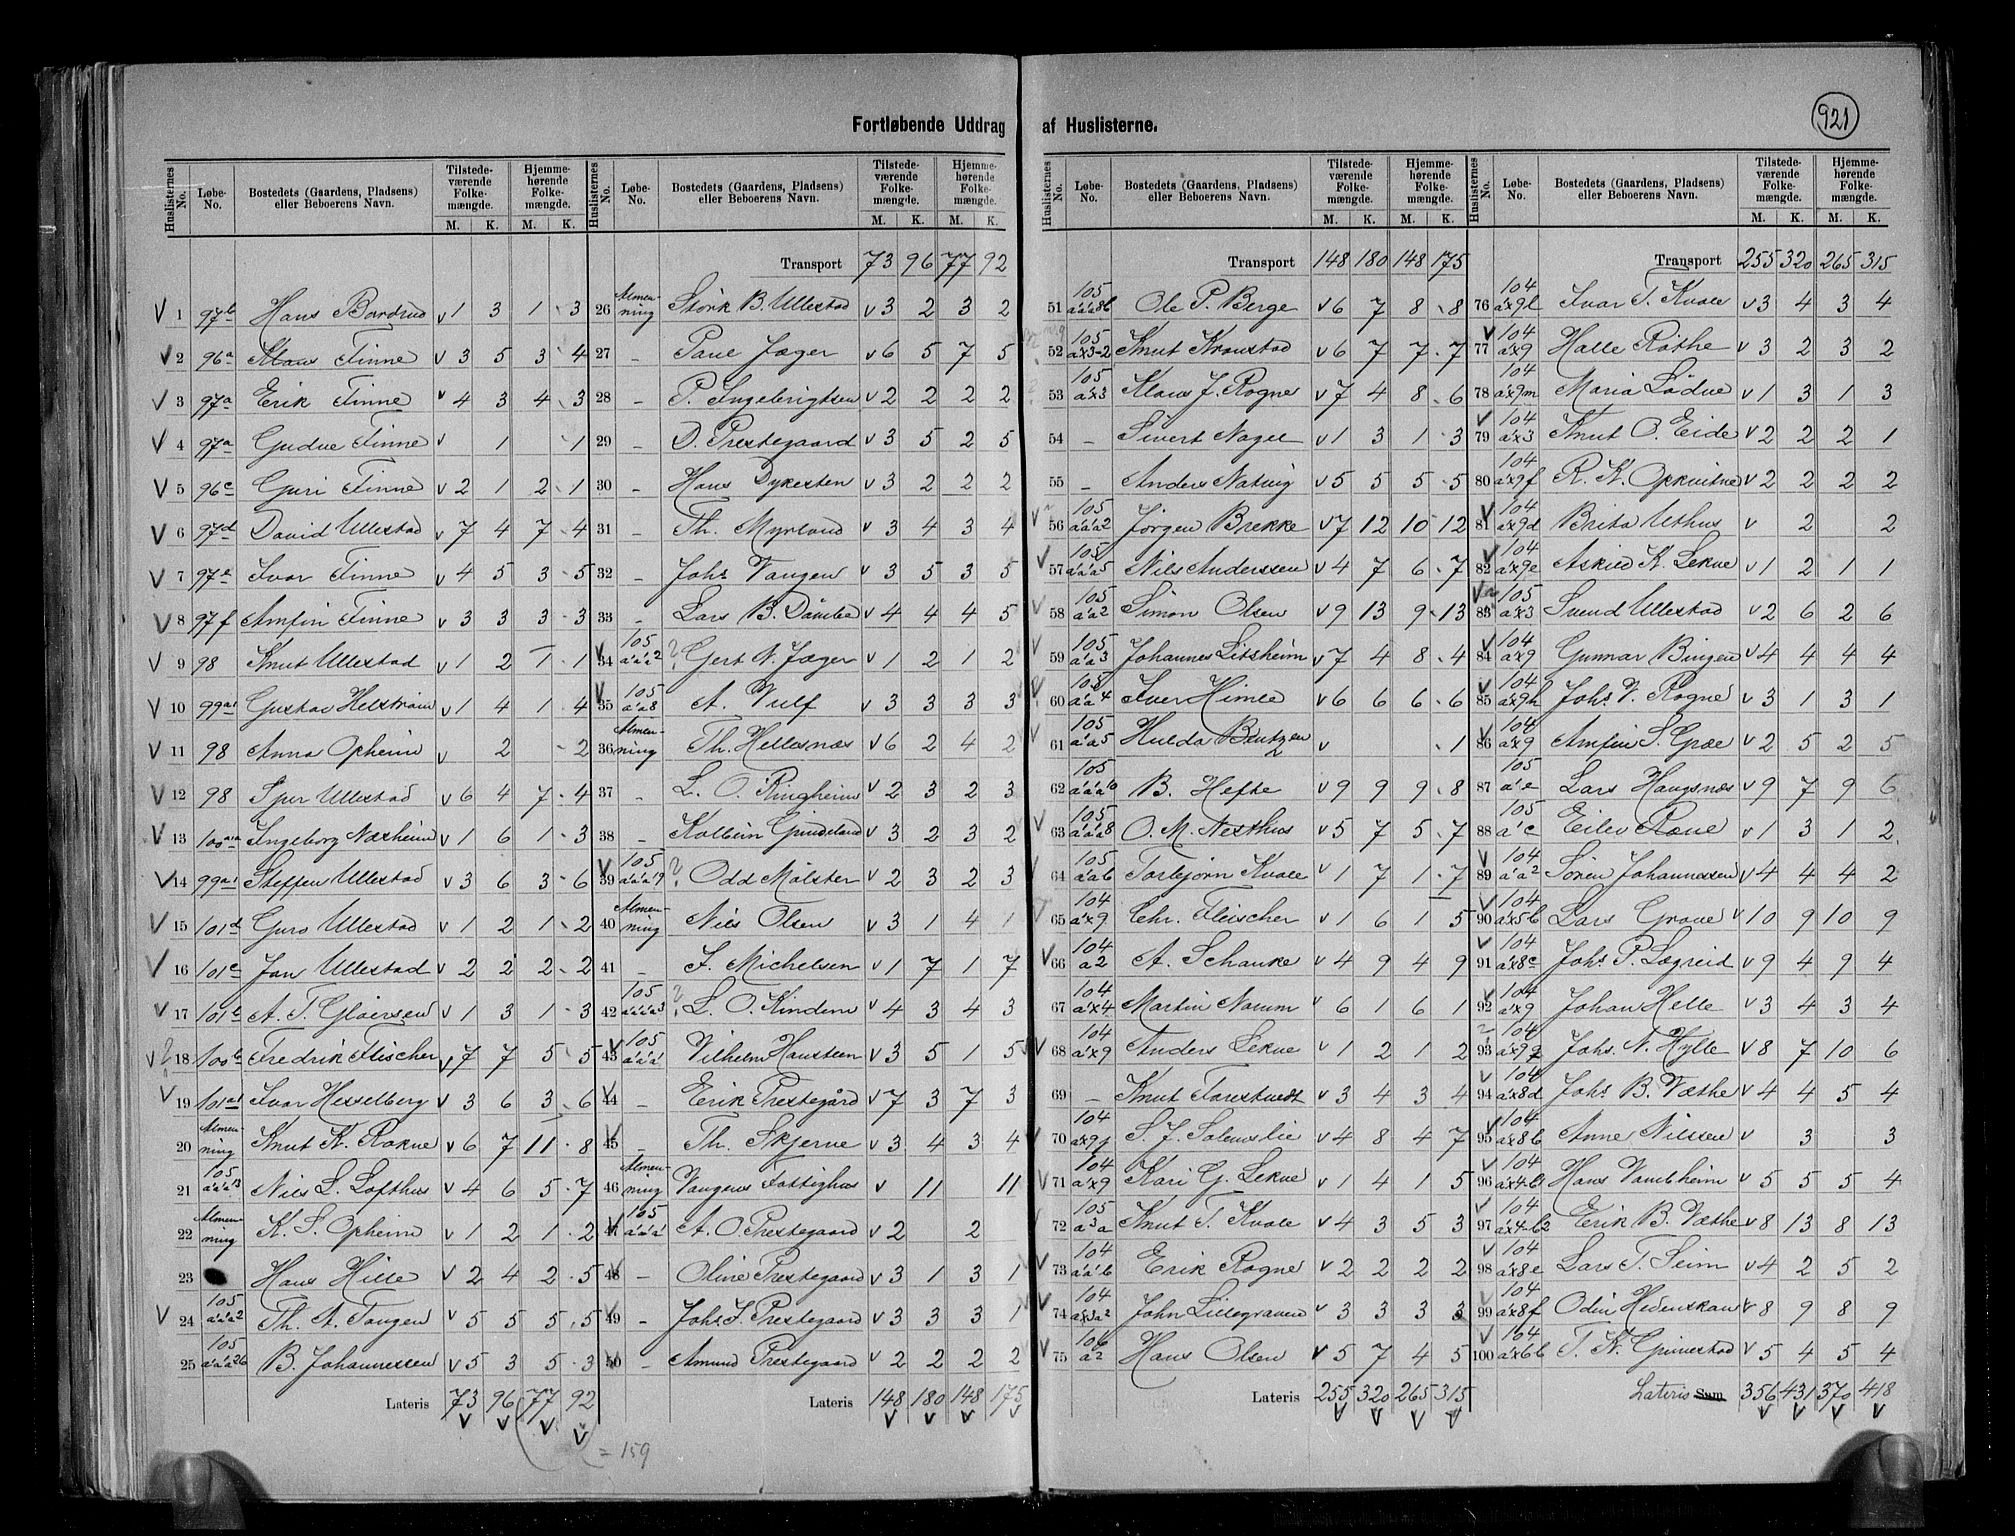 921
Fortløbende Uddrag af Huslisterne.
Huslisternes No. Løbe-No. Bostedets (Gaardens, Pladsens) eller Beboerens Navn. Tilstedeværende Folkemængde. M. K. Hjemmehørende Folkemængde. M. K.
1 97b Hans Bordrud v 1 3 1 3
2 96a Finne v 3 5 3 4
3 97a Erik Finne v 4 3 4 3
4 97a Gudve Finne v 1 1
5 96c Guri Finne v 2 1 2 1
6 97d David Ullestad v 7 4 7 4
7 97e Ivar Finne v 4 5 3 5
8 97f Amfin Finne v 3 3 3 3
9 98 Knut Ullestad v 1 2 1 1
10 99a1 Gustav Helstrøm v 1 4 1 4
11 98 Anna Opheim v 2 2
12 98 Sjur Ullestad v 6 4 7 4
13 Ingeborg Næsheim v 1 6 1 3
14 99a1 Steffen Ullestad v 3 6 3 6
15 101d Guro Ullestad v 1 2 1 2
16 101c Jan Ullestad v 2 2 2 2
17 101b A. T. Gløersen v 1 3 1 3
18 100b Fredrik Flischer v 7 7 5 5
19 101a1 Ivar Hesselberg v 3 6 3 6
20 Almenning Knut K. Rokne v 6 7 11 8
21 105 Nils L. Lofthus v 4 6 5 7
22 Almenning K. S. Opheim v 1 2 1 2
23 Hans Hille v 2 4 2 5
24 105 a'a'a2 Th. A. Tangen v 5 5 5 5
25 105 a'a'a2b B. Johannessen v 5 3 5 3
Lateris 73 96 77 92
= 159
Huslisternes No. Løbe-No. Bostedets (Gaardens, Pladsens) eller Beboerens Navn. Tilstedeværende Folkemængde. M. K. Hjemmehørende Folkemængde. M. K.
Transport 73 96 77 92
26 Almenning Størk B. Ullestad v 3 2 3 2
27 - Paul Jæger v 6 5 7 5
28 - P. Ingebrigtsen v 2 2 2 2
29 - D. Prestegaard v 3 5 2 5
30 - Hans Dykesten v 3 2 2 2
31 - Th. Myrland v 3 4 3 4
32 - Johs Vangen v 3 5 3 5
33 - Lars B. v 4 4 4 5
34 105 a'a'a2 Gert N. Jæger v 1 2 1 2
35 105 a'a8 A. Vulf v 3 3 3 3
36 Almenning Th. Hellesnæs v 6 2 4 2
37 - L. O. Ringheim v 2 3 2 3
38 - Kolbein Grindeland v 3 2 3 2
39 105 Odd Mølster v 2 3 2 3
40 Almenning Nils Olsen v 3 1 4 1
41 - J. Michelsen v 1 7 1 7
42 105 a'a'a3 L. O. Kindem v 4 3 4 3
43 105 a'a'a' Vilhelm Hansteen v 3 5 1 5
44 - Erik Prestegård v 7 3 7 3
45 - Th. Skjerve v 3 4 3 4
46 Almenning Vangens Fattighus v 11 11
47 105 a'a'a' A. O. Prestegaard v 2 2
48 - Oline Prestegaard v 3 1 3 1
49 - Johs J. Prestegaard v 3 3 3 1
50 - Amund Prestegaard v 2 2 2 2
Lateris 148 180 148 175
Huslisternes No. Løbe-No. Bostedets (Gaardens, Pladsens) eller Beboerens Navn. Tilstedeværende Folkemængde. M. K. Hjemmehørende Folkemængde. M. K.
Transport 148 180 148 175
51 105 a'a'a8b Ole P. Berge v 6 7 8 8
52 105 a'x3-2 Knut Kronstad v 6 7 7 7
53 105 a'x3 Klaus J. Rogne v 7 4 8 6
54 - Sivert Nagel v 1 3 1 3
55 - Anders Nating v 5 5 5 5
56 105 a'a'a2 Jørgen Brekke v 7 12 10 12
57 105 a'a'a5 Nils Anderssen v 4 7 6 7
58 105 a'a2 Simon Olsen v 9 13 9 13
59 105 a'a3 Johannes Litsheim v 7 4 8 4
60 105 a'a4 Iver Himle v 6 6 6 6
61 105 a'a5 Hulda v 1
62 105 B. Hefte v 9 9 9 8
63 105 a'a'a8 O. M. Nesthus v 5 7 5 7
64 105 a'a6 Torbjørn Kvale v 1 7 1 7
65 104 a'x9 Chr. Fleischer v 1 6 1 5
66 104 a2 A. Schanke v 4 9 4 9
67 104 a'x4 Martin Norum v 6 1 6 1
68 104 a'x9 Anders Lekve v 1 2 1 2
69 - Knut Torstvedt v 3 4 3 4
70 104 a'x9j S. J. Solemslie v 4 8 4 7
71 104 a'x9 Kari G. Lekve v 1 4 1 5
72 105 a'3a Knut T. Kvale v 4 3 5 3
73 104 a'a'b Erik Rogne v 2 2 2 2
74 104 a'x3a2 John Lillegraven v 3 3 3 3
75 106 a2 Hans Olsen v 5 7 4 5
Lateris 255 320 265 315
Huslisternes No. Løbe-No. Bostedets (Gaardens, Pladsens) eller Beboerens Navn. Tilstedeværende Folkemængde. M. K. Hjemmehørende Folkemængde. M. K.
Transport 255 320 265 315
76 104 a'x9l Ivar T. Kvale v 3 4 3 4
77 104 a'x9 Halle Røthe v 3 2 3 2
78 104 a'x9m Maria Lødve v 1 3 1 3
79 104 a'x3 Knut O. Eide v 2 2 2 1
80 104 a'x9f R. K. Opkvitne v 2 2 2 2
81 104 a'x9d Brita Uthus v 2 2
82 104 a'x9e Askied K. Lekve v 1 2 1 1
83 105 a'x3 Svend Ullestad v 2 6 2 6
84 104 a'x9 Gunnar Bingen v 4 4 4 4
85 104 a'x9h Johs. V. Rogne v 3 1 3 1
86 104 a'x9 Amfin S. Græe v 2 5 2 5
87 105 a'e Lars Haugsnæs v 9 7 9 6
88 105 a'c Eilev Ræne v 1 3 1 2
89 104 a'a2 Søren Johannessen v 4 4 4 2
90 104 a'x5b Lars Grove v 10 9 10 9
91 104 a'x8c Johs P. Lægreid v 9 4 9 4
92 104 a'x9 Johan Helle v 3 4 3 4
93 104 a'x9g Johs. N. Hylle v 8 7 10 6
94 104 a'x8d Johs B. Væthe v 4 4 5 4
95 104 a'x8b Anne Nilssen v 3 3
96 104 a'x4b Hans Vambheim v 5 5 5 4
97 104 a'x4-b2 Erik B. Væthe v 8 13 8 13
98 104 a'x8e Lars T. Seim v 4 2 5 2
99 104 a'x8f Odin Hedenskau v 8 9 8 9
100 104 a'x6b T. K. Grimestad v 5 4 5 4
Lateris Sum 356 431 370 418